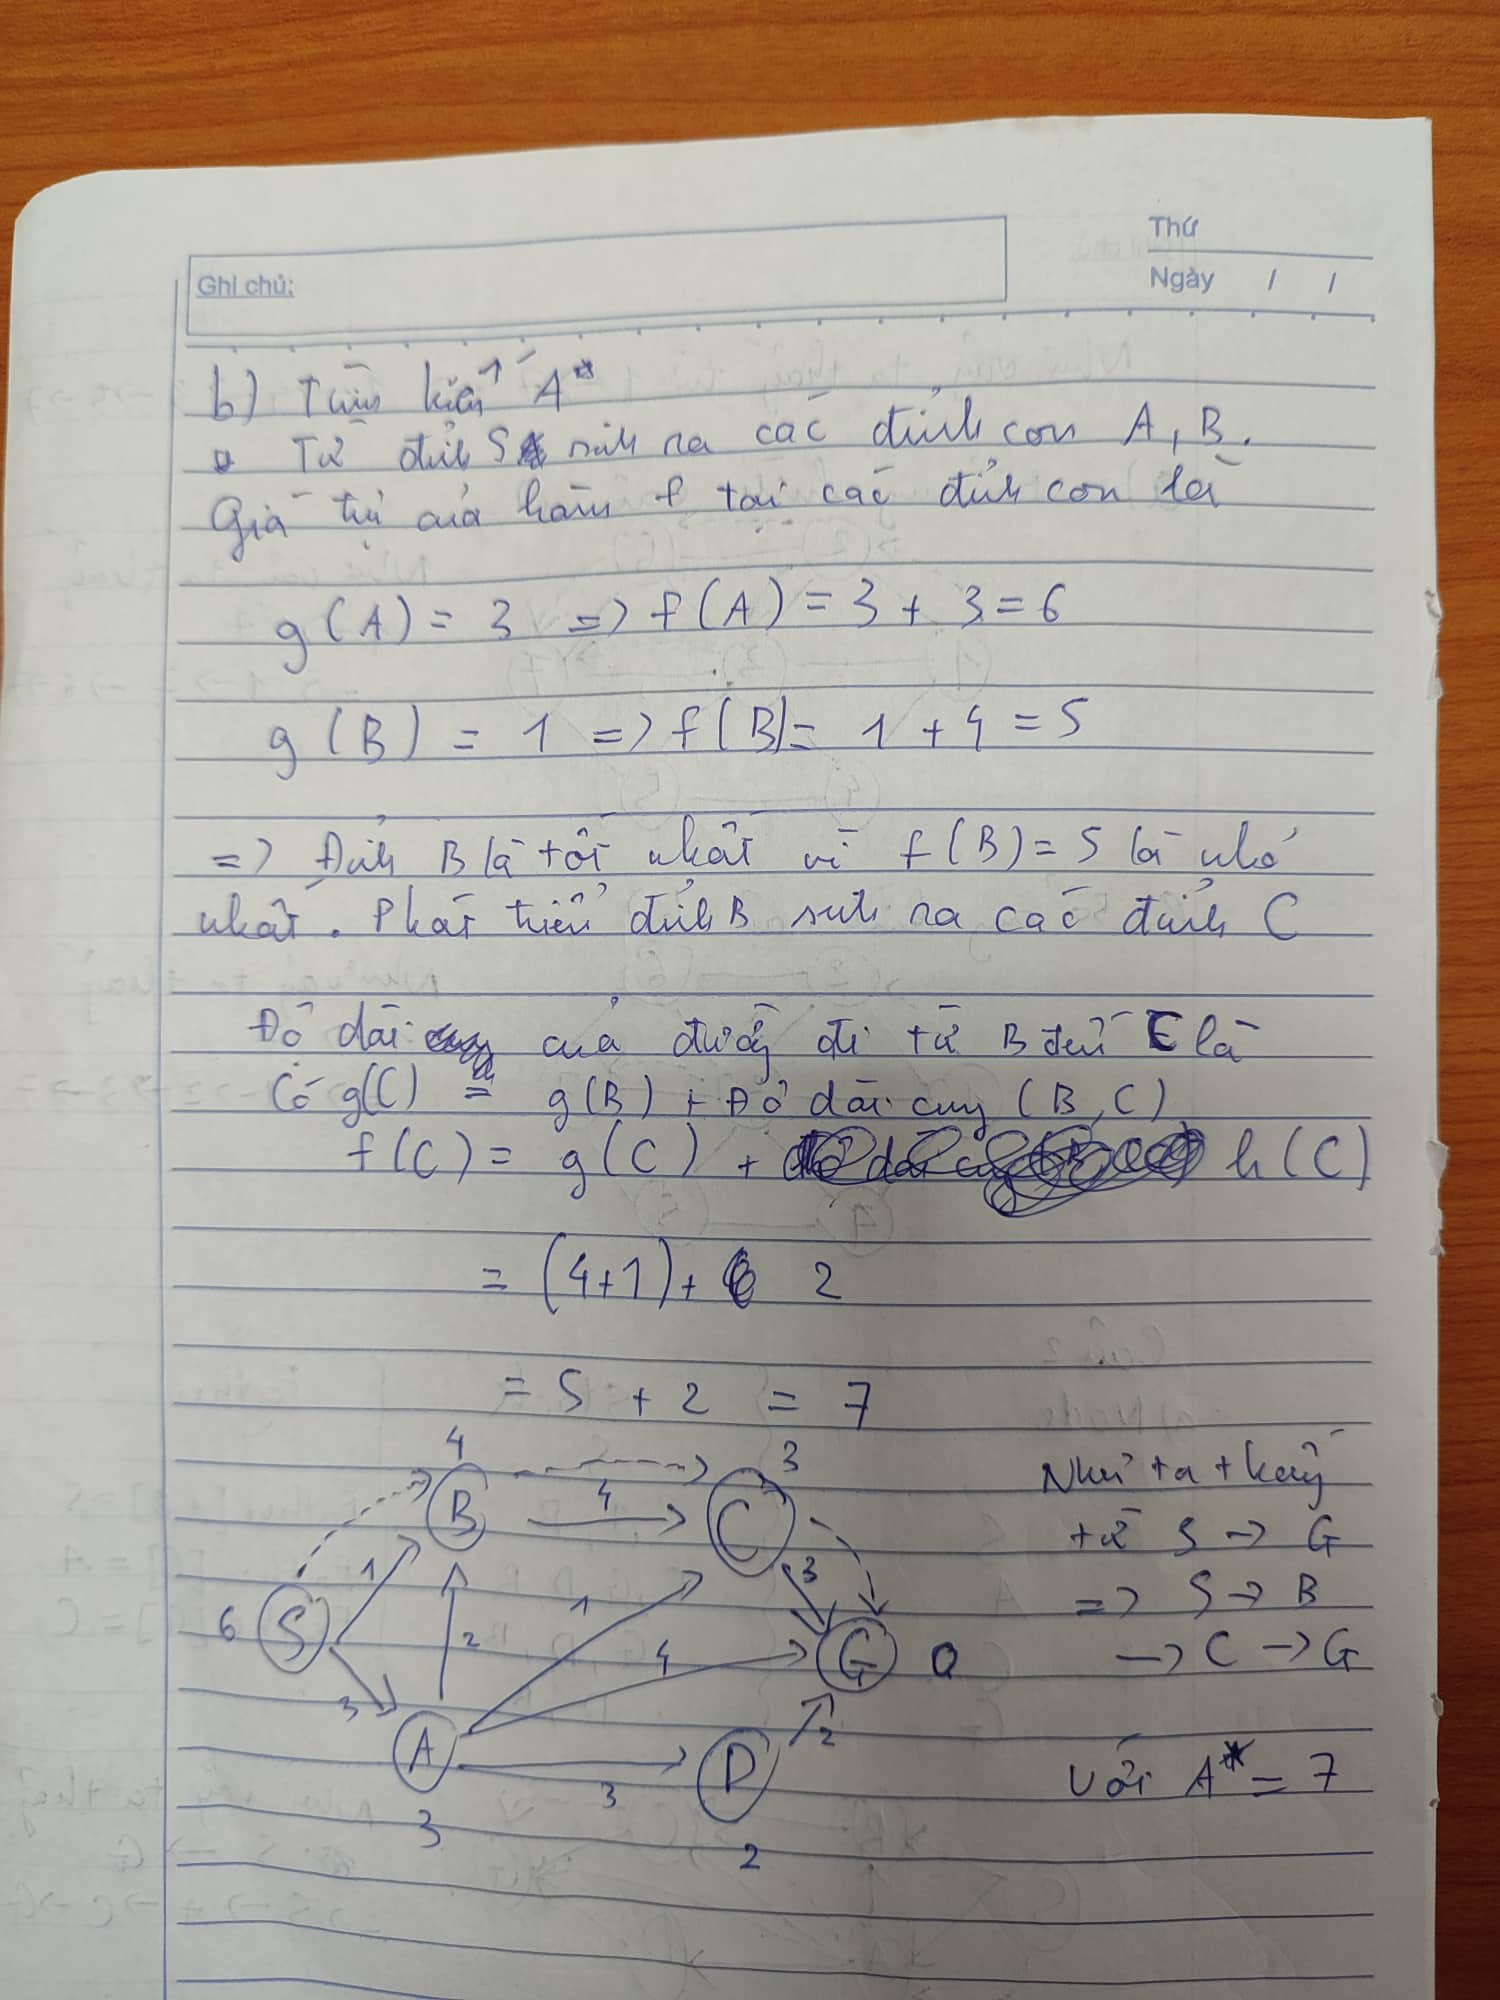 Thứ
Ghi chú:
Ngày / /
b) Tìm kiếm A*
Từ đỉnh S sinh ra các đỉnh con A, B.
Giá trị của hàm f tại các đỉnh con là
g(A) = 3 => f(A) = 3 + 3 = 6
g(B) = 1 => f(B) = 1 + 4 = 5
=> Đỉnh B là tốt nhất vì f(B) = 5 là nhỏ
nhất. Phát triển đỉnh B sinh ra các đỉnh C
Độ dài của đường đi từ B đến C là
Có g(C) = g(B) + Độ dài cung (B, C)
f(C) = g(C) + h(C)
= (4+1) + 2
= 5 + 2 = 7
4
B
4
3
C
Như ta thấy
từ S -> G
=> S -> B
-> C -> G
1
3
6
S
1
2
4
G
0
3
A
3
D
2
3
2
Với A* = 7